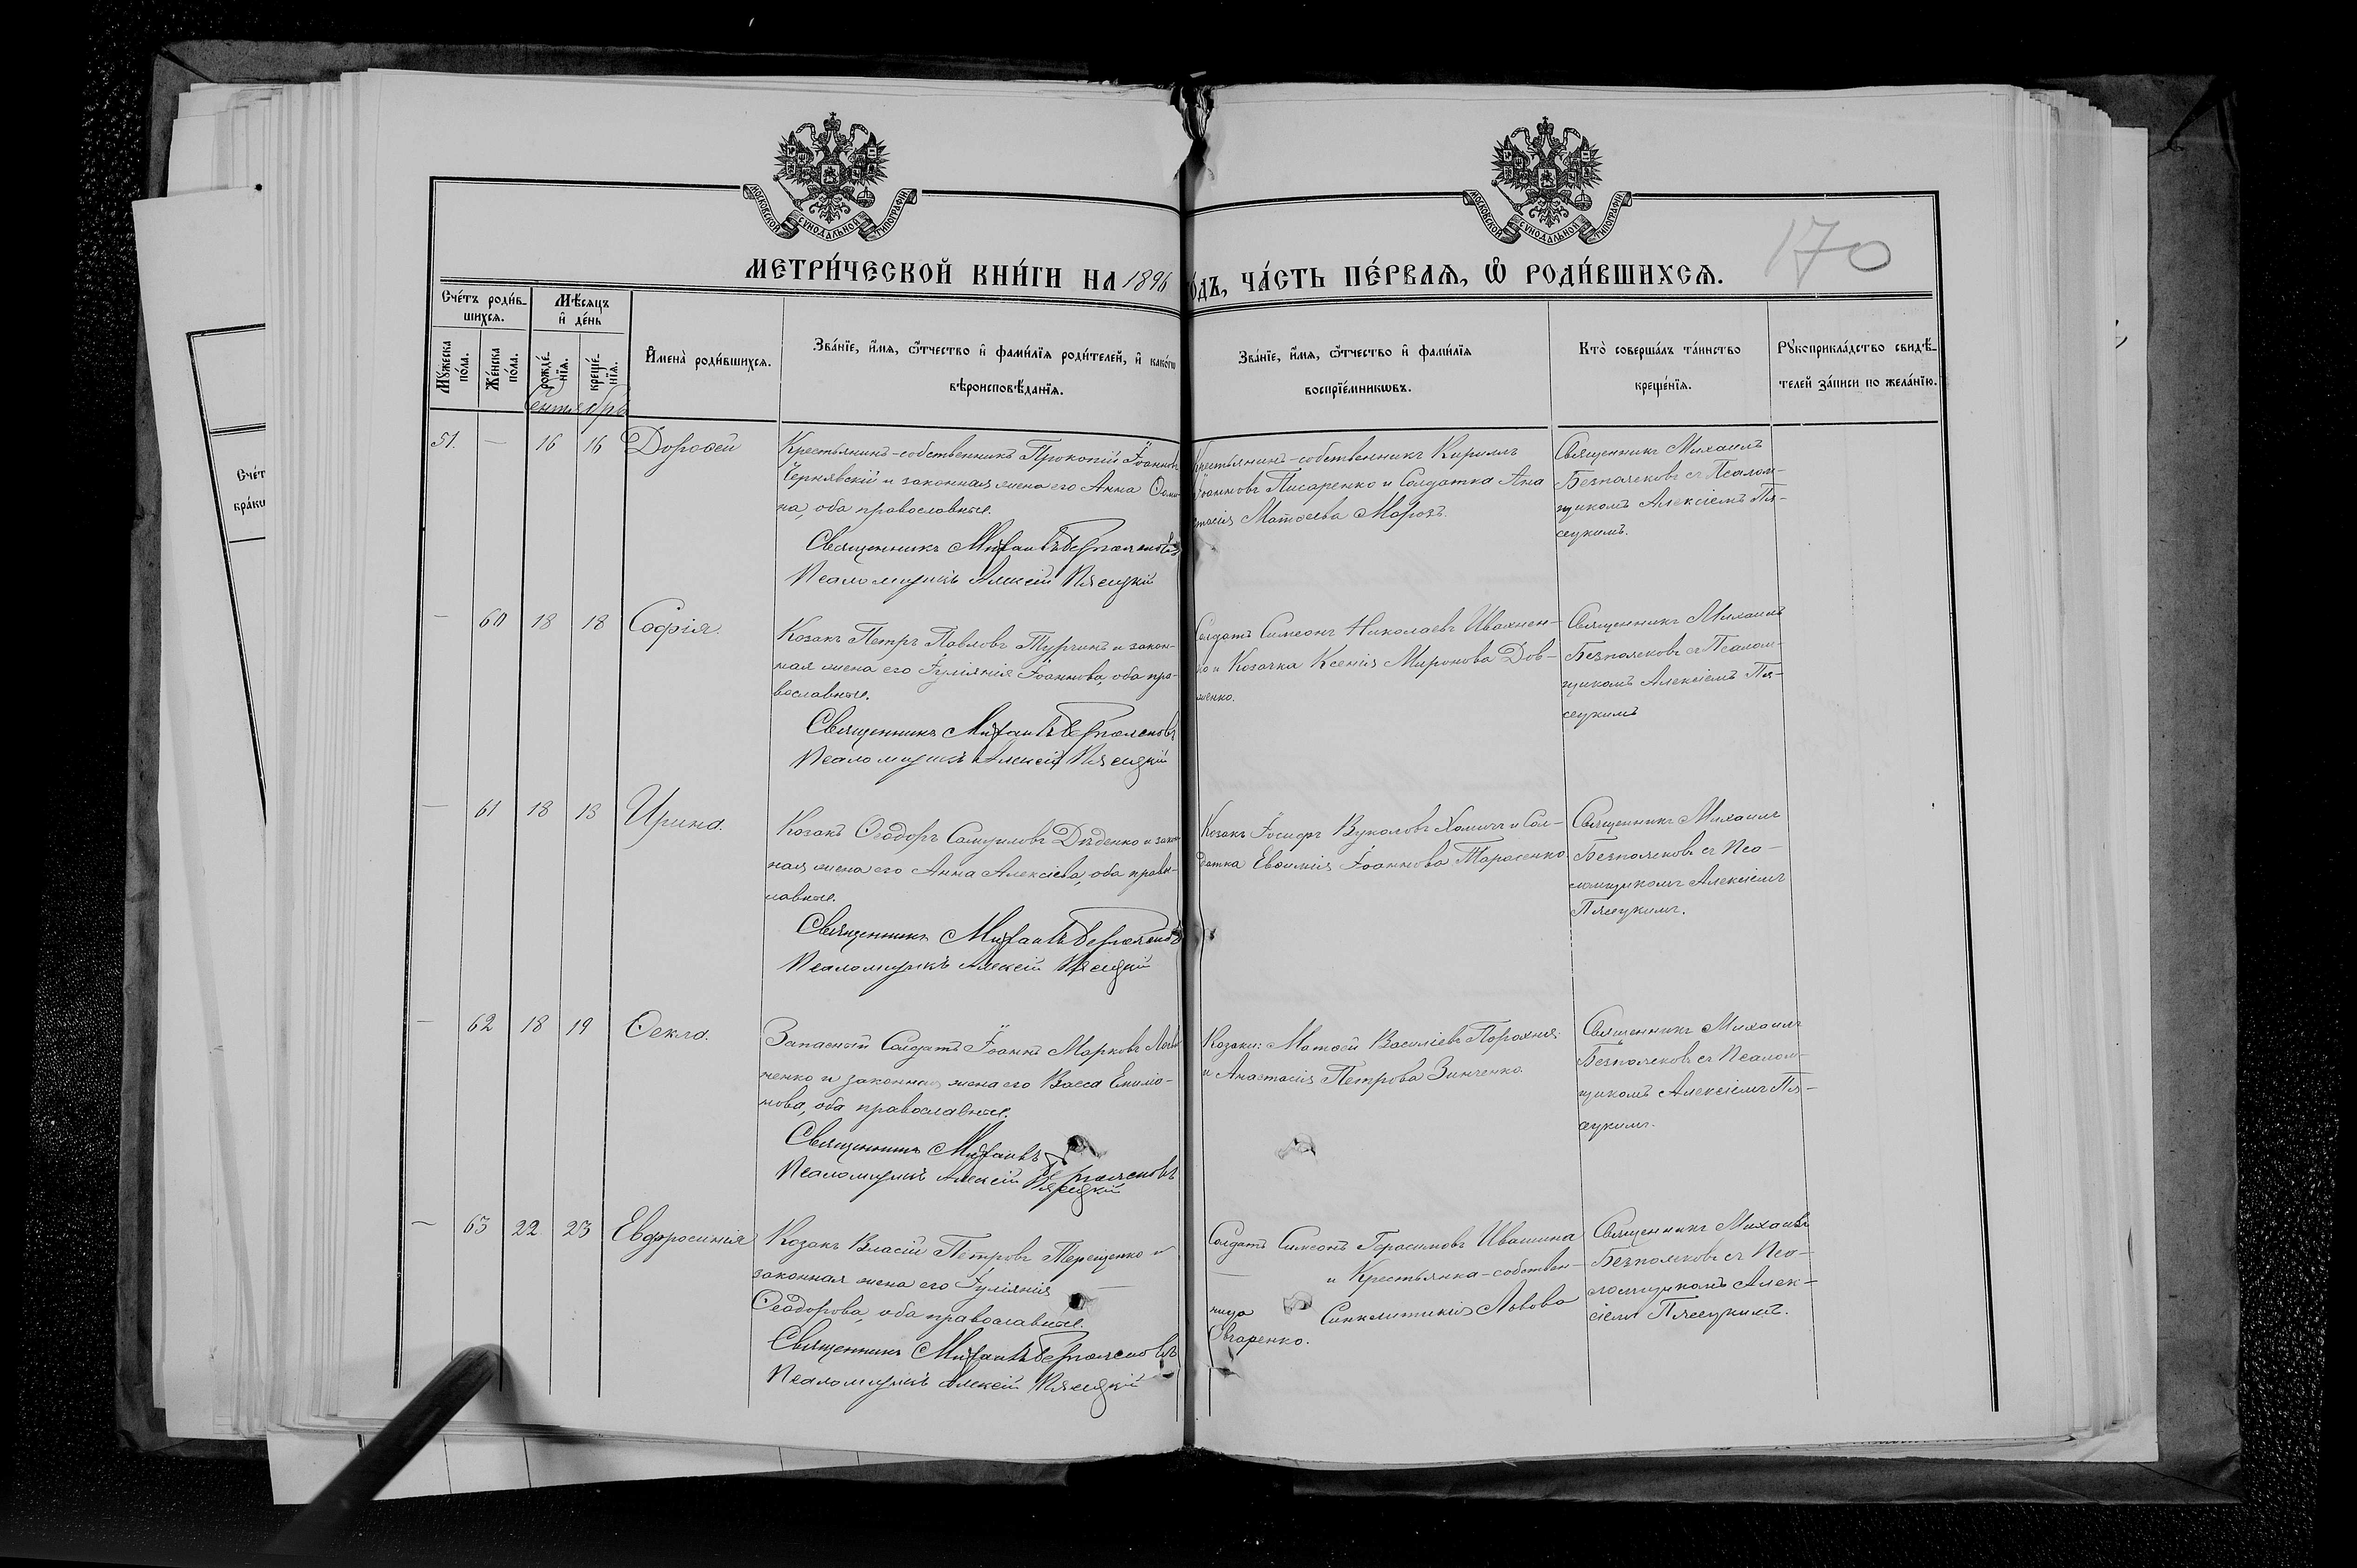 МОСКОВСКОЙ СУНОДАЛЬНОЙ ТИПОГРАФІИ
МОСКОВСКОЙ СУНОДАЛЬНОЙ ТИПОГРАФІИ
170
МЕТРИ́ЧЕСКОЙ КНИ́ГИ НА 1896
ОДЪ, ЧА́СТЬ ПЕ́РВАѦ, Ѿ РОДИ́ВШИХСѦ.
Сче́тъ роди́в-
шихсѧ.
Му́жеска по́ла.
Же́нска по́ла.
Мѣ́сѧцъ
и҆ де́нь
рожде́-
нїѧ.
креще́-
нїѧ.
И҆мена̀ роди́вшихсѧ.
Зва́нїе, и҆́мѧ, ѻ҆́тчество и҆ фами́лїѧ роди́телей, и҆ како́гѡ
вѣроисповѣ́данїѧ.
Зва́нїе, и҆́мѧ, ѻ҆́тчество и҆ фами́лїѧ
воспрїе́мникѡвъ.
Кто̀ соверша́лъ та́инство
креще́нїѧ.
Рꙋкоприкла́дство свидѣ́-
телей за́писи по жела́нїю.
Сентябрь
51. — 16 16 Дороѳей
Крестьянинъ-собственникъ Прокопій Іоанновъ
Чернявскій и законная жена его Анна Ѳоми-
на, оба православные.
Священникъ Михаилъ Безпалековъ
Псаломщикъ Алексій Пясецкій
Крестьянинъ-собственникъ Кириллъ
Іоанновъ Писаренко и Солдатка Ана
стасія Матѳеева Морозъ.
Священникъ Михаилъ
Безпалековъ съ Псалом-
щикомъ Алексіемъ Пя-
сецкимъ.
— 60 18 18 Софія.
Козакъ Петръ Павловъ Турчинъ и закон-
ная жена его Іуліянія Іоаннова, оба пра-
вославные.
Священникъ Михаилъ Безпалековъ
Псаломщикъ Алексій Пясецкій
Солдатъ Симеонъ Николаевъ Ивахнен-
ко и Козачка Ксенія Миронова Дов-
женко.
Священникъ Михаилъ
Безпалековъ съ Псалом-
щикомъ Алексіемъ Пя-
сецкимъ
— 61 18 18 Ирина.
Козакъ Ѳеодоръ Самуиловъ Дѣденко и закон
ная жена его Анна Алексіева, оба правос-
лавные.
Священникъ Михаилъ Безпалековъ
Псаломщикъ Алексій Пясецкій
Козакъ Іосифъ Вуколовъ Хомичъ и Сол-
датка Евѳимія Іоаннова Тарасенко
Священникъ Михаилъ
Безпалековъ съ Пса-
ломщикомъ Алексіемъ
Пясецкимъ.
— 62 18 19 Ѳекла.
Запасный Солдатъ Іоаннъ Марковъ
ченко и законная жена его Васса Емилія-
нова, оба православные.
Священникъ Михаилъ Безпалековъ
Псаломщикъ Алексій Пясецкій
Козаки: Матѳей Василіевъ Порохня
и Анастасія Петрова Зинченко.
Священникъ Михаилъ
Безпалековъ съ Псалом-
щикомъ Алексіемъ Пя-
сецкимъ.
— 63 22 23 Евфросинія
Козакъ Власій Петровъ Терещенко и
законная жена его Іуліянія —
Ѳеодорова, оба православные.
Священникъ Михаилъ Безпалековъ
Псаломщикъ Алексій Пясецкій
Солдатъ Симеонъ Герасимовъ Ивашина
— и Крестьянка-собствен-
ница Синклитикія Львова
Овчаренко.
Священникъ Михаилъ
Безпалековъ съ Пса-
ломщикомъ Алек-
сіемъ Пясецкимъ.
Сче́т
бра́кѡ